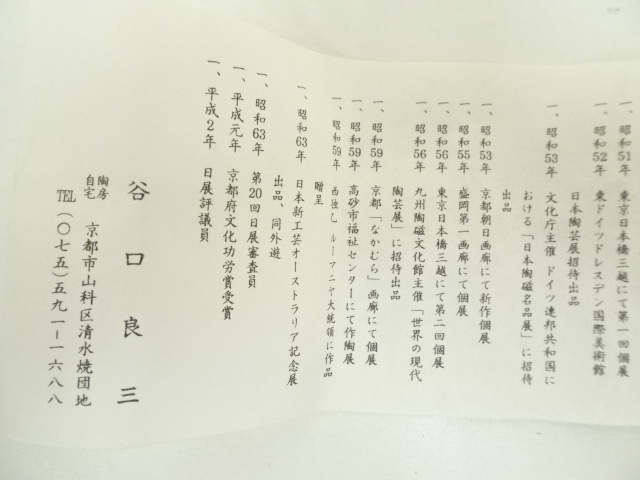 一、昭和51年 東京日本橋三越にて第一回個展
一、昭和52年 東ドイツドレスデン国際美術館
日本陶芸展招待出品
一、昭和53年 文化庁主催 ドイツ連邦共和国に
おける「日本陶磁名品展」に招待
出品
一、昭和53年 京都朝日画廊にて新作個展
一、昭和55年 盛岡第一画廊にて個展
一、昭和56年 東京日本橋三越にて第二回個展
一、昭和56年 九州陶磁文化館主催「世界の現代
陶芸展」に招待出品
一、昭和59年 京都「なかむら」画廊にて個展
一、昭和59年 高砂市福祉センターにて作陶展
一、昭和59年 西独乙 ルーマニヤ大統領に作品
贈呈
一、昭和63年 日本新工芸オーストラリア記念展
出品、同外遊
一、昭和63年 第20回日展審査員
一、平成元年 京都府文化功労賞受賞
一、平成2年 日展評議員
谷口良三
陶房
自宅 京都市山科区清水焼団地
TEL(〇七五)五九一ー一六八八